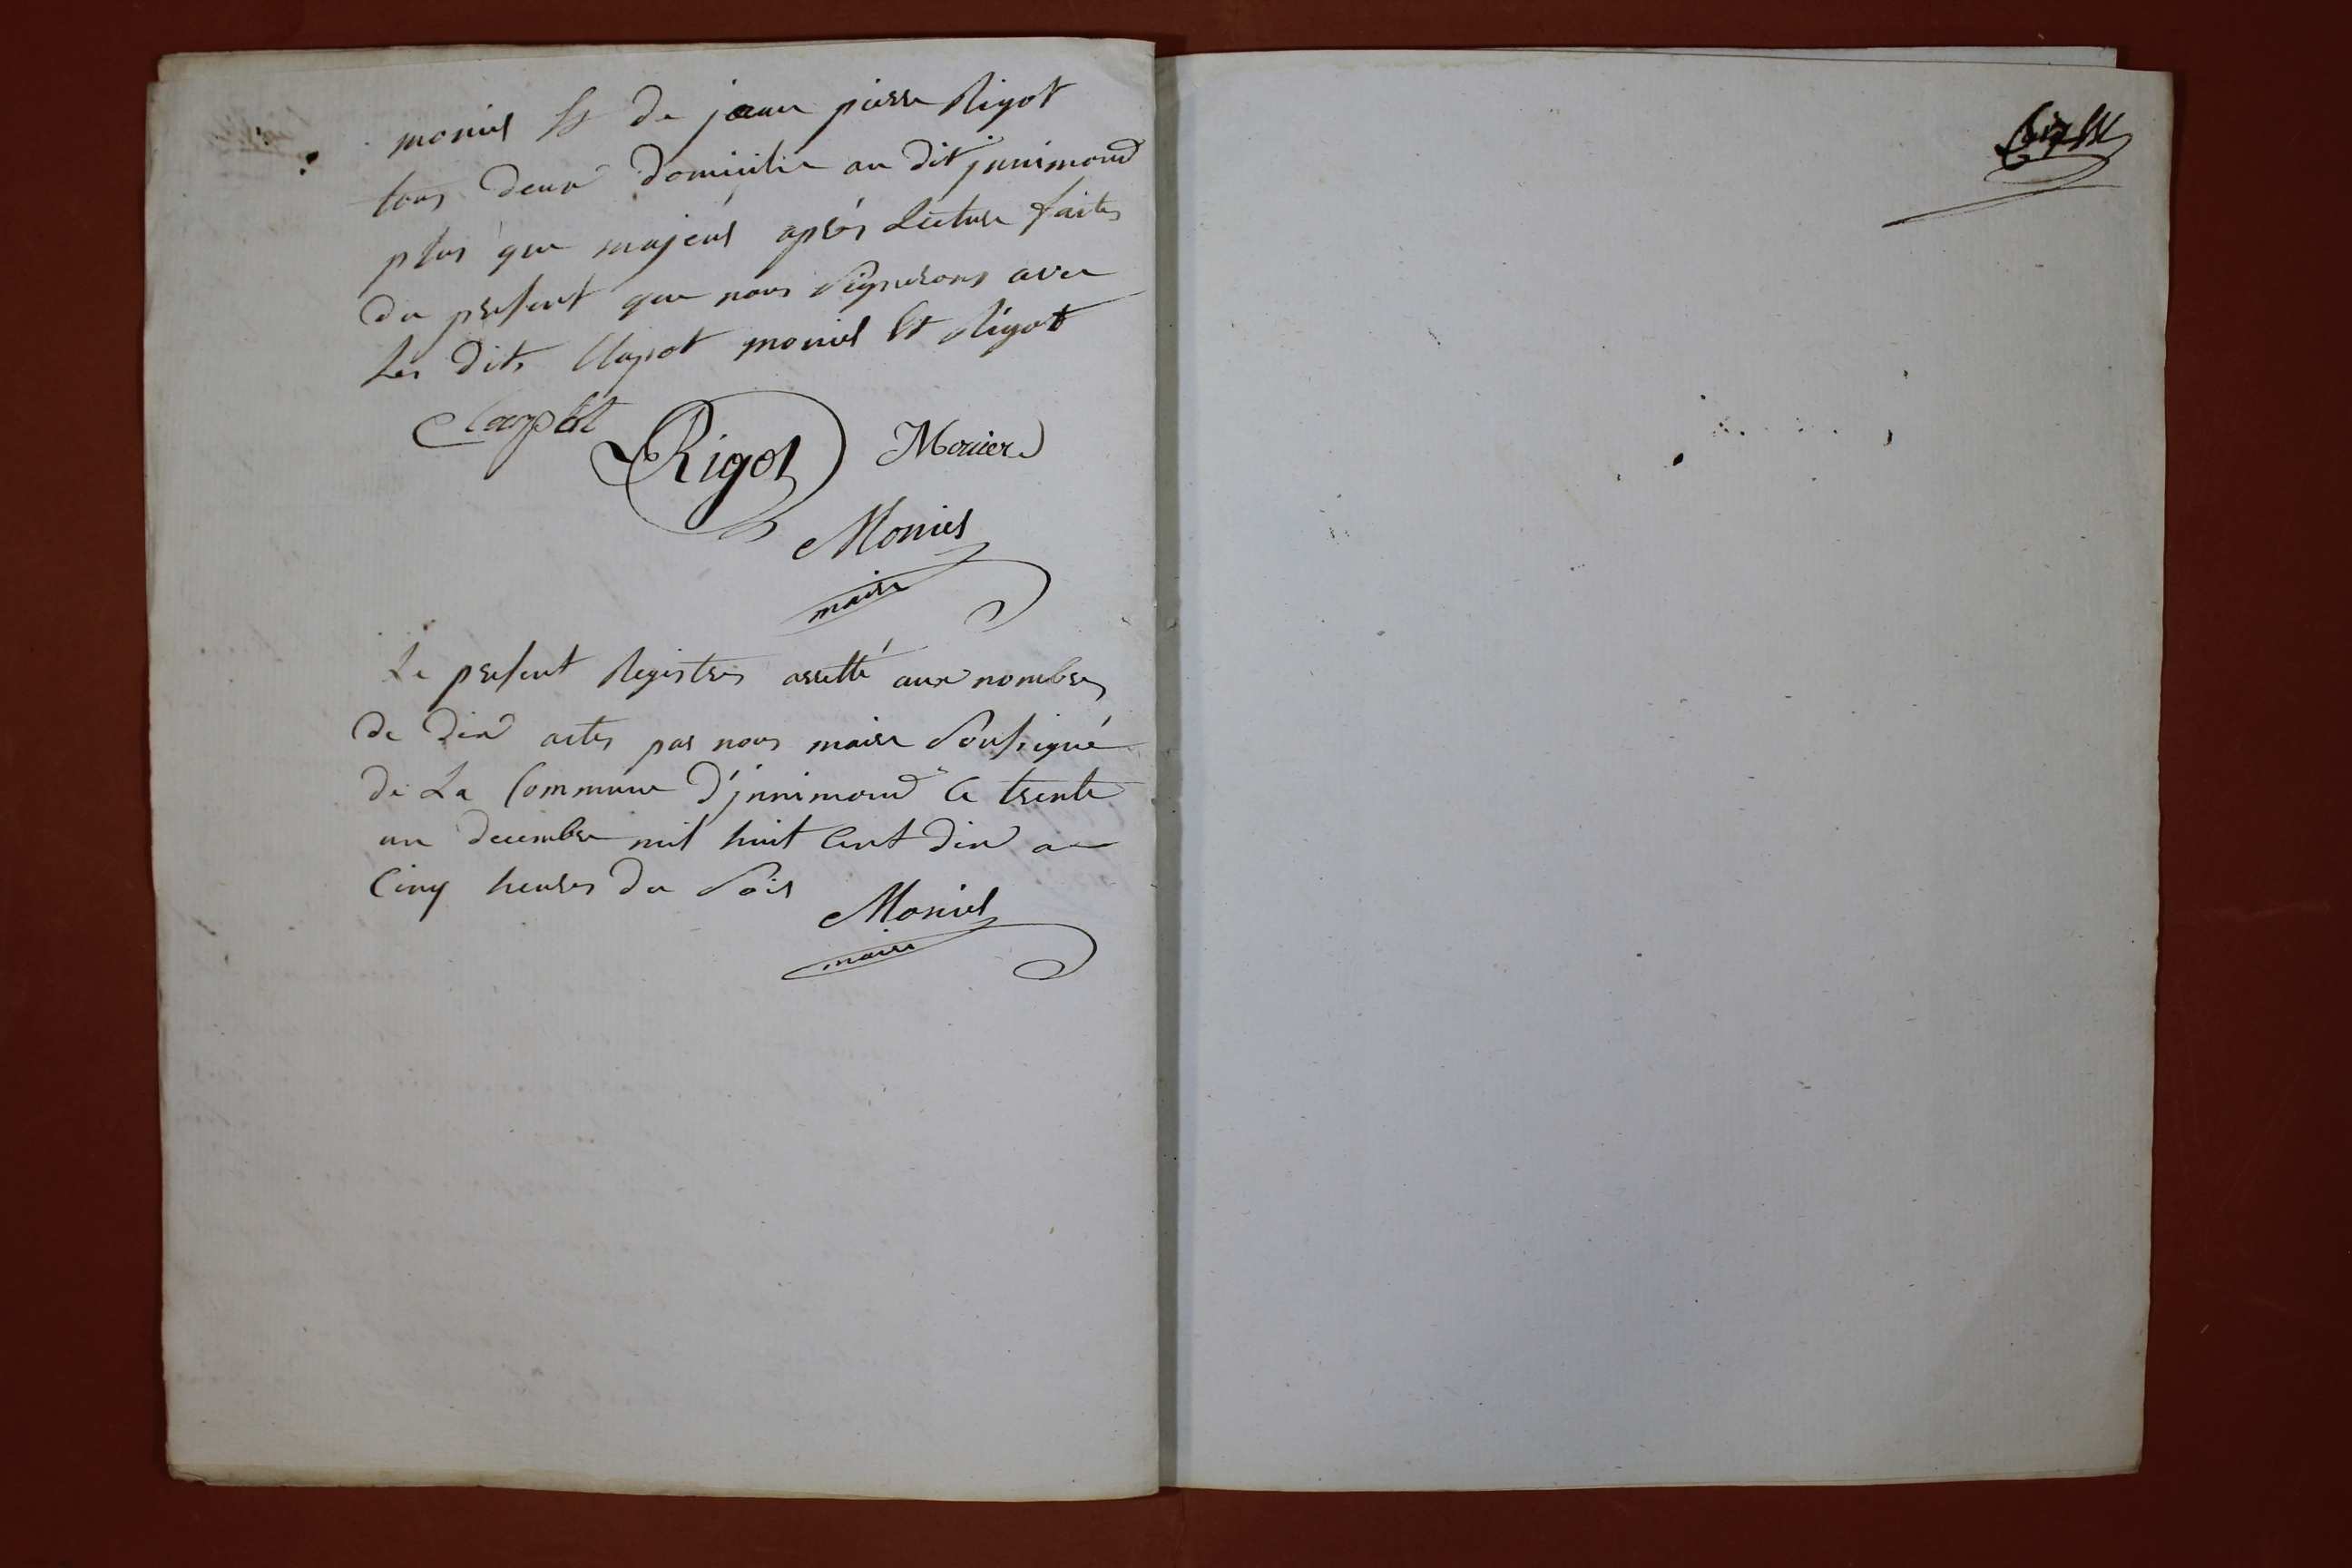 monier Et de jean pierre Rigot
tous deux domicilie au dit jnnimond
plus que majeur aprés Lecture faites
du present que nous signerons avec
Les dits Clapot monier Et Rigot
Clapot
Rigot
Monier
Monier
maire
Le present Registres arretté aux nombres
de dix actes par nous maire Soussigné
de La Commune d'jnnimond ce trente
un decembre mil huit Cent dix a
Cinq heures du Soir
Monier
maire